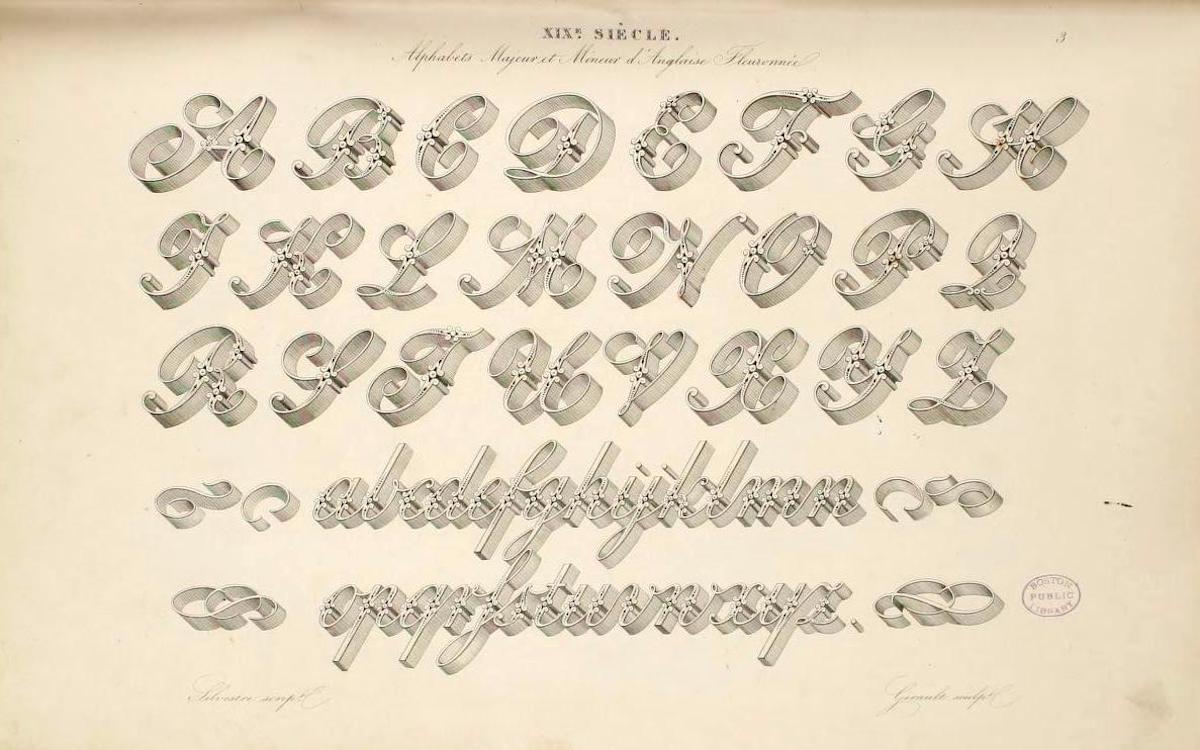 XIXᵉ SIÈCLE.
3
Alphabets Majeur et Mineur d'Anglaise Fleuronnée
A B C D E F G H
I K L M N O P Q
R S T U V X Y Z
abcdefghijklmn
opqrſstuvwxyz.
BOSTON
PUBLIC
LIBRARY
Silvestre scripᵗ
Girault sculpᵗ